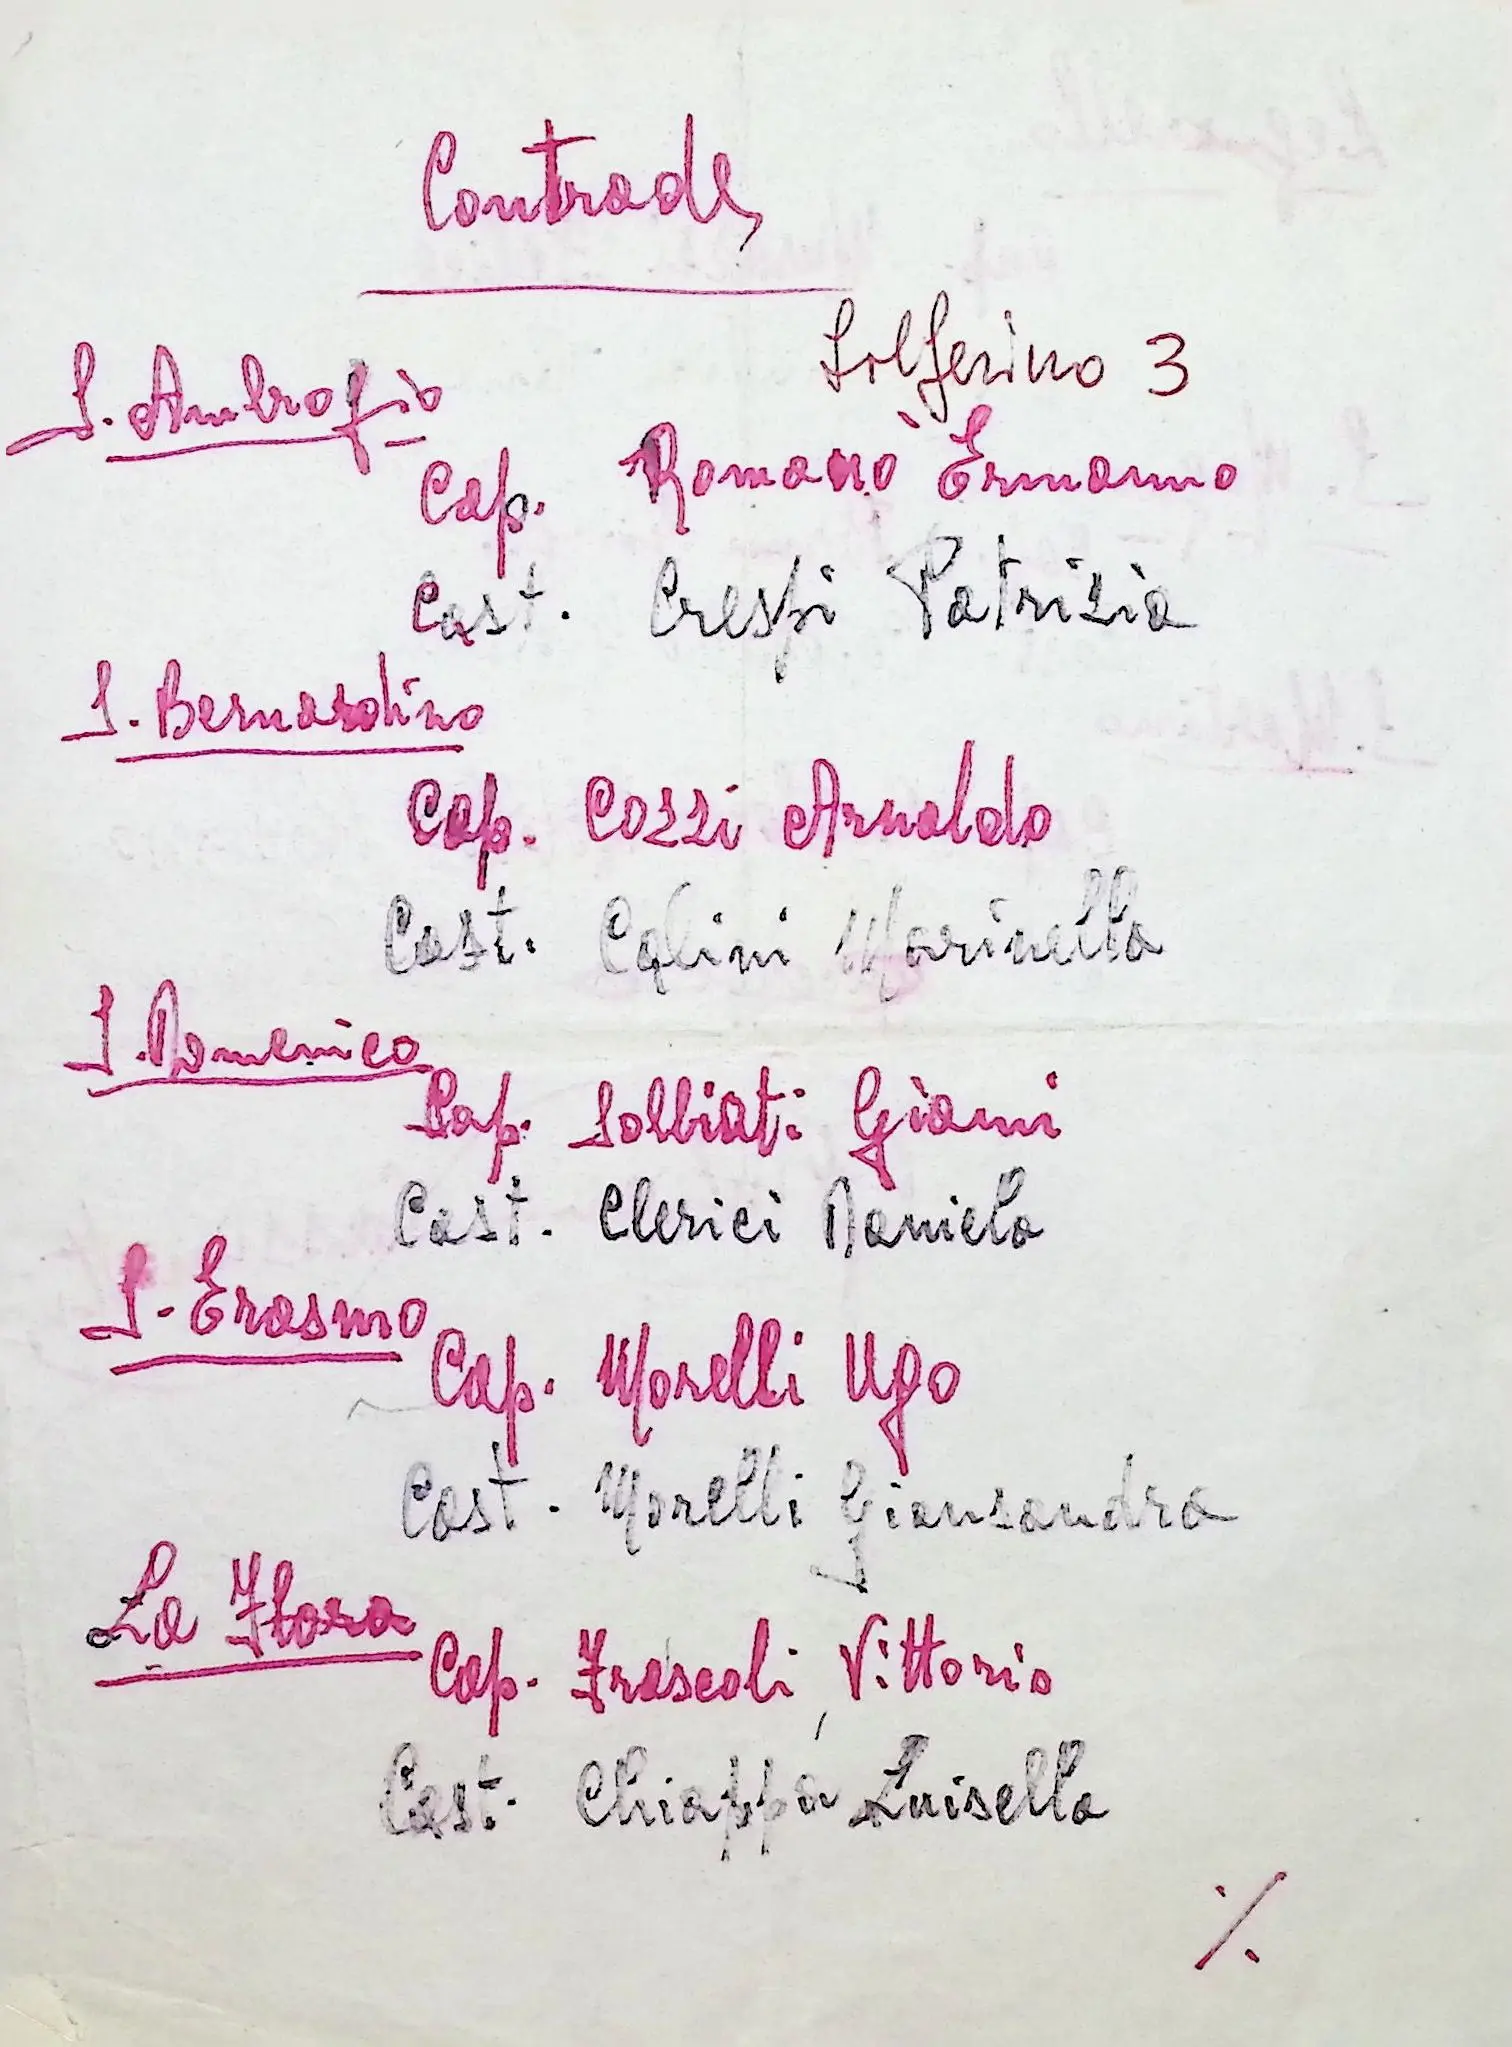 Contrade
Solferino 3
S. Ambrogio
Cap. Romanò Ermanno
Cast. Crespi Patrizia
S. Bernardino
Cap. Cozzi Arnaldo
Cast. Colini Marinella
S. Domenico
Cap. Solbiati Gianni
Cast. Clerici Daniela
S. Erasmo
Cap. Morelli Ugo
Cast. Morelli Giansandra
La Flora
Cap. Frascoli Vittorio
Cast. Chiappa Luisella
./.